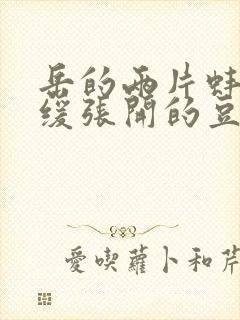 岳的兩片蚌
緩張開的豆
愛喫蘿卜和芹